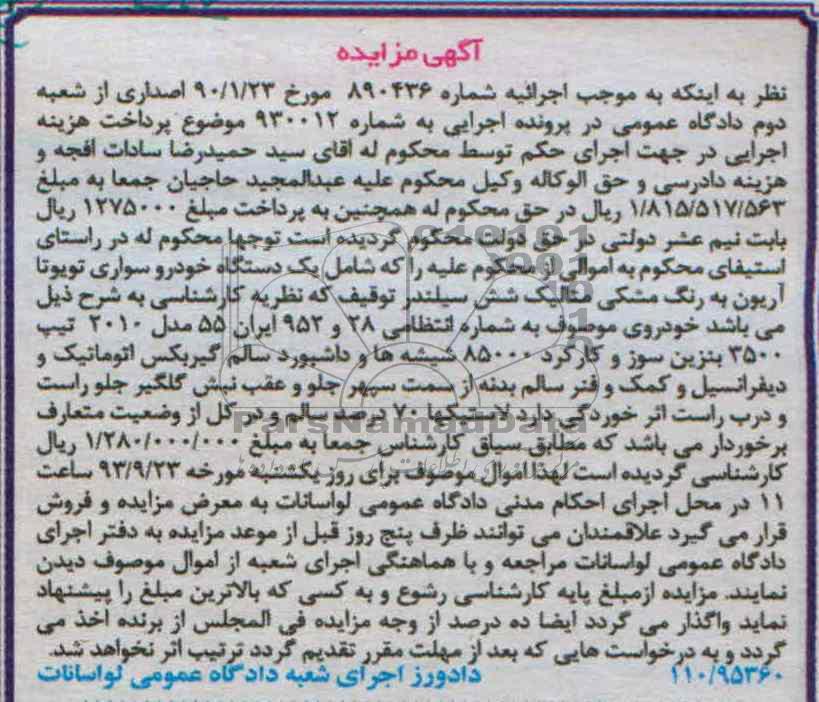 آگهی مزایده
نظر به اینکه به موجب اجرائیه شماره ۸۹۰۴۳۶ مورخ ۹۰/۱/۲۳ اصداری از شعبه
دوم دادگاه عمومی در پرونده اجرایی به شماره ۹۳۰۰۱۲ موضوع پرداخت هزینه
اجرایی در جهت اجرای حکم توسط محکوم له اقای سید حمیدرضا سادات افجه و
هزینه دادرسی و حق الوکاله وکیل محکوم علیه عبدالمجید حاجیان جمعا به مبلغ
۱/۸۱۵/۵۱۷/۵۶۳ ریال در حق محکوم له همچنین به پرداخت مبلغ ۱۲۷۵۰۰۰ ریال
بابت نیم عشر دولتی در حق دولت محکوم گردیده است توجها محکوم له در راستای
استیفای محکوم به اموالی از محکوم علیه را که شامل یک دستگاه خودرو سواری تویوتا
آریون به رنگ مشکی متالیک شش سیلندر توقیف که نظریه کارشناسی به شرح ذیل
می باشد خودروی موصوف به شماره انتظامی ۲۸ و ۹۵۲ ایران ۵۵ مدل ۲۰۱۰ تیپ
۳۵۰۰ بنزین سوز و کارکرد ۸۵۰۰۰ شیشه ها و داشبورد سالم گیربکس اتوماتیک و
دیفرانسیل و کمک و فنر سالم بدنه از سمت سپهر جلو و عقب نبش گلگیر جلو راست
و درب راست اثر خوردگی دارد لاستیکها ۷۰ درصد سالم و در کل از وضعیت متعارف
برخوردار می باشد که مطابق سیاق کارشناس جمعا به مبلغ ۱/۲۸۰/۰۰۰/۰۰۰ ریال
کارشناسی گردیده است لهذا اموال موصوف برای روز یکشنبه مورخه ۹۳/۹/۲۳ ساعت
۱۱ در محل اجرای احکام مدنی دادگاه عمومی لواسانات به معرض مزایده و فروش
قرار می گیرد علاقمندان می توانند ظرف پنج روز قبل از موعد مزایده به دفتر اجرای
دادگاه عمومی لواسانات مراجعه و با هماهنگی اجرای شعبه از اموال موصوف دیدن
نمایند. مزایده ازمبلغ پایه کارشناسی رشوع و به کسی که بالاترین مبلغ را پیشنهاد
نماید واگذار می گردد ایضا ده درصد از وجه مزایده فی المجلس از برنده اخذ می
گردد و به درخواست هایی که بعد از مهلت مقرر تقدیم گردد ترتیب اثر نخواهد شد.
۱۱۰/۹۵۳۶۰ دادورز اجرای شعبه دادگاه عمومی لواسانات
ParsNamadData